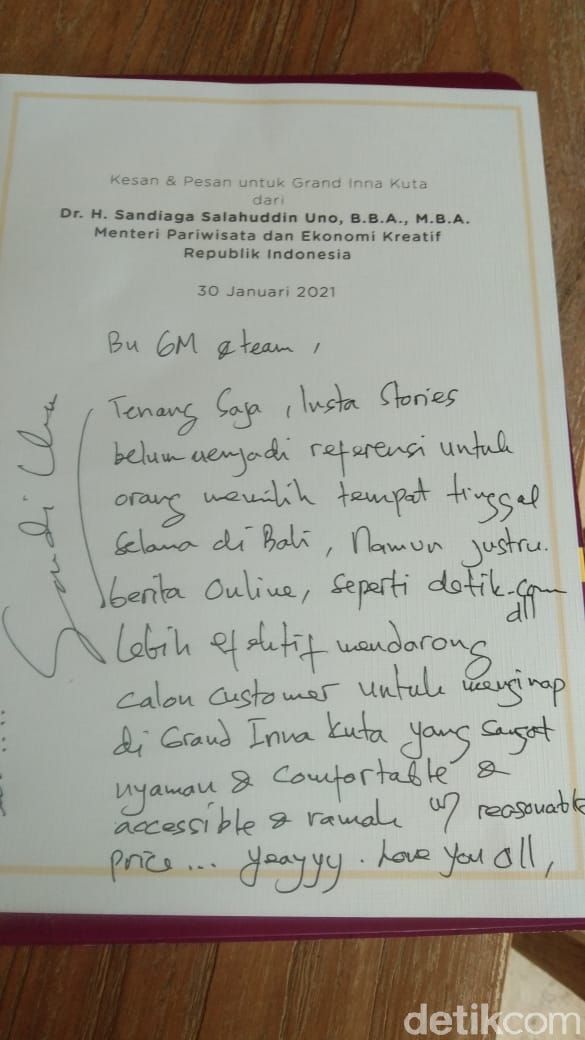 Kesan & Pesan untuk Grand Inna Kuta
dari
Dr. H. Sandiaga Salahuddin Uno, B.B.A., M.B.A.
Menteri Pariwisata dan Ekonomi Kreatif
Republik Indonesia
30 Januari 2021
Bu GM & team,
Tenang Saja, Insta Stories
belum menjadi referensi untuk
orang memilih tempat tinggal
selama di Bali, Namun justru
berita Online, seperti detik.com
dll
lebih efektif mendorong
calon customer untuk menginap
di Grand Inna Kuta yang sangat
nyaman & Comfortable &
accessible & ramah w/ reasonable
price... yeayyy. Love you all,
Sandi Uno
detikcom